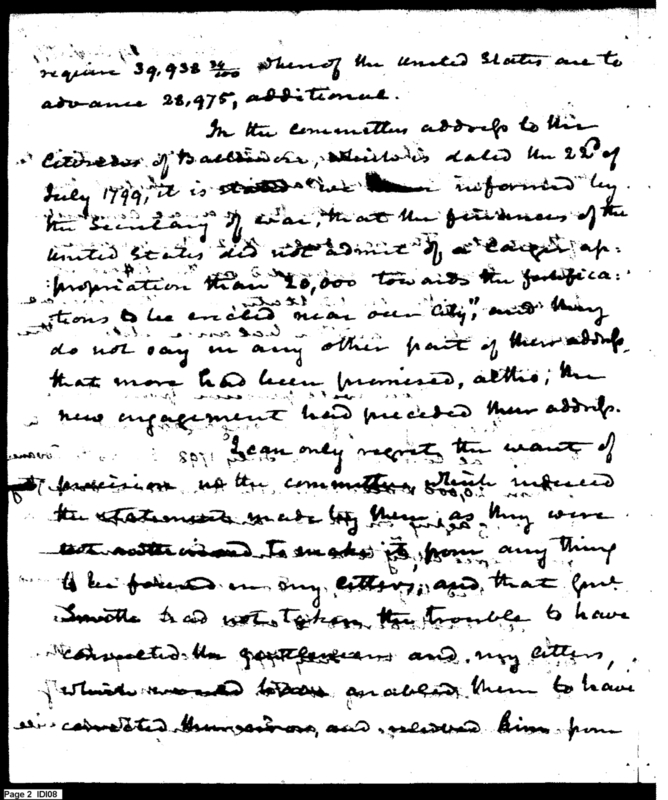 require 39,938 39/100 whereof the United States are to
advance 28,975, additional.
In the committees address to the
Citizens of Baltimore, which is dated the 22d of
July 1799, it is "we informed by
the Secretary of war, that the finances of the
United States did not admit of a larger ap-
propriation than 20,000 towards the fortifica-
tions to be erected near our City", and they
do not say in any other part of their address,
that more had been promised, altho; the
new engagement had preceded their address.
I can only regret the want of
precision in the committee which induced
the statements made by them, as they were
not authorised to make it, from any thing
to be found in my letters, and that Genl
Smith had not taken the trouble to have
consulted the gentlemen and my letters,
which would have enabled them to have
corrected their errors, and relieved him from
Page 2 IDI08